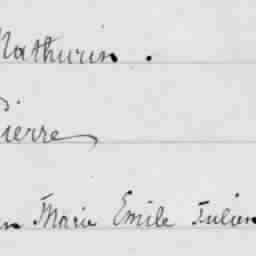 Mathurin.
Pierre
Marie Emile Julien